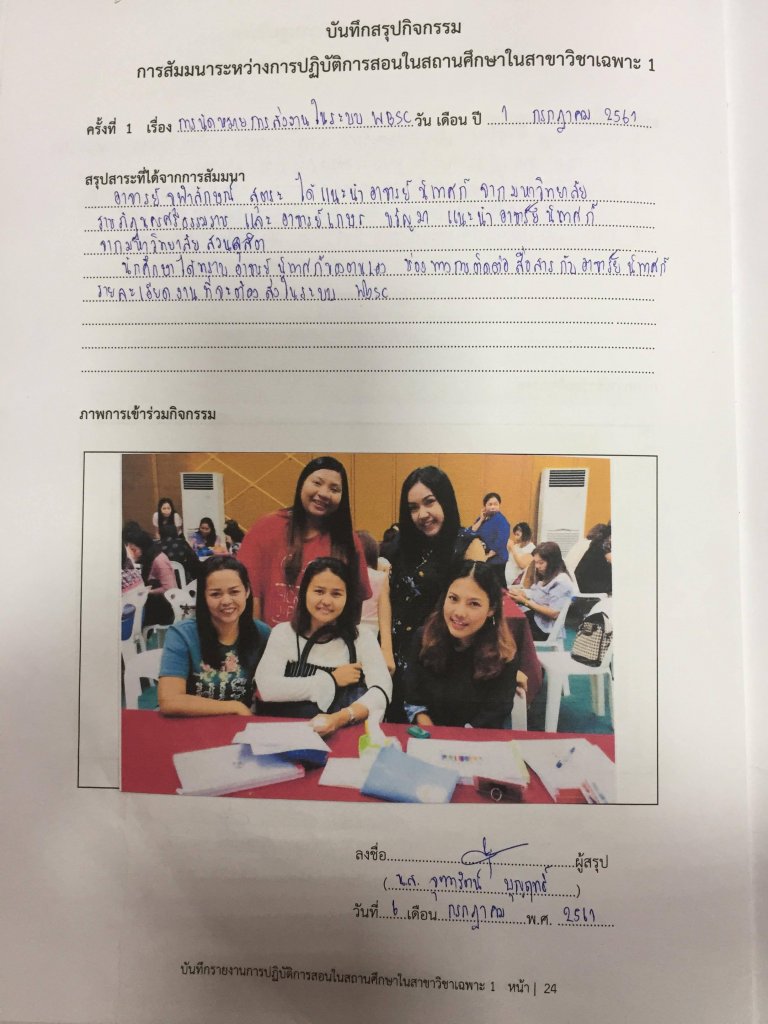 บันทึกสรุปกิจกรรม
การสัมมนาระหว่างการปฏิบัติการสอนในสถานศึกษาในสาขาวิชาเฉพาะ 1
ครั้งที่ 1 เรื่อง การนัดหมายการส่งงานในระบบ WBSC วัน เดือน ปี 1 กรกฎาคม 2561
สรุปสาระที่ได้จากการสัมมนา
อาจารย์ จุฬาลักษณ์ ได้แนะนำอาจารย์นิเทศก์ จากมหาวิทยาลัย
ราชภัฏนครศรีธรรมราช และ อาจารย์เกษร ขวัญมา แนะนำ อาจารย์นิเทศก์
จากมหาวิทยาลัย สวนดุสิต
นักศึกษาได้ทราบ อาจารย์นิเทศก์ของตนเอง ช่องทางการติดต่อ สื่อสารกับอาจารย์นิเทศก์
รายละเอียดงานที่จะต้องส่งในระบบ Wbsc
ภาพการเข้าร่วมกิจกรรม
ลงชื่อ ผู้สรุป
(น.ส. จุฑารัตน์ บุญฤทธิ์)
วันที่ 6 เดือน กรกฎาคม พ.ศ. 2561
บันทึกรายงานการปฏิบัติการสอนในสถานศึกษาในสาขาวิชาเฉพาะ 1 หน้า | 24